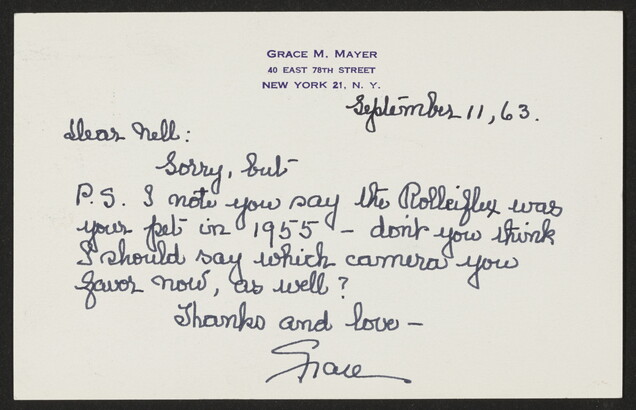 GRACE M. MAYER
40 EAST 78TH STREET
NEW YORK 21, N. Y.
September 11, 63.
Dear Nell:
Sorry, but
P.S. I note you say the Rolleiflex was
your pet in 1955 – don't you think
I should say which camera you
favor now, as well?
Thanks and love –
Grace